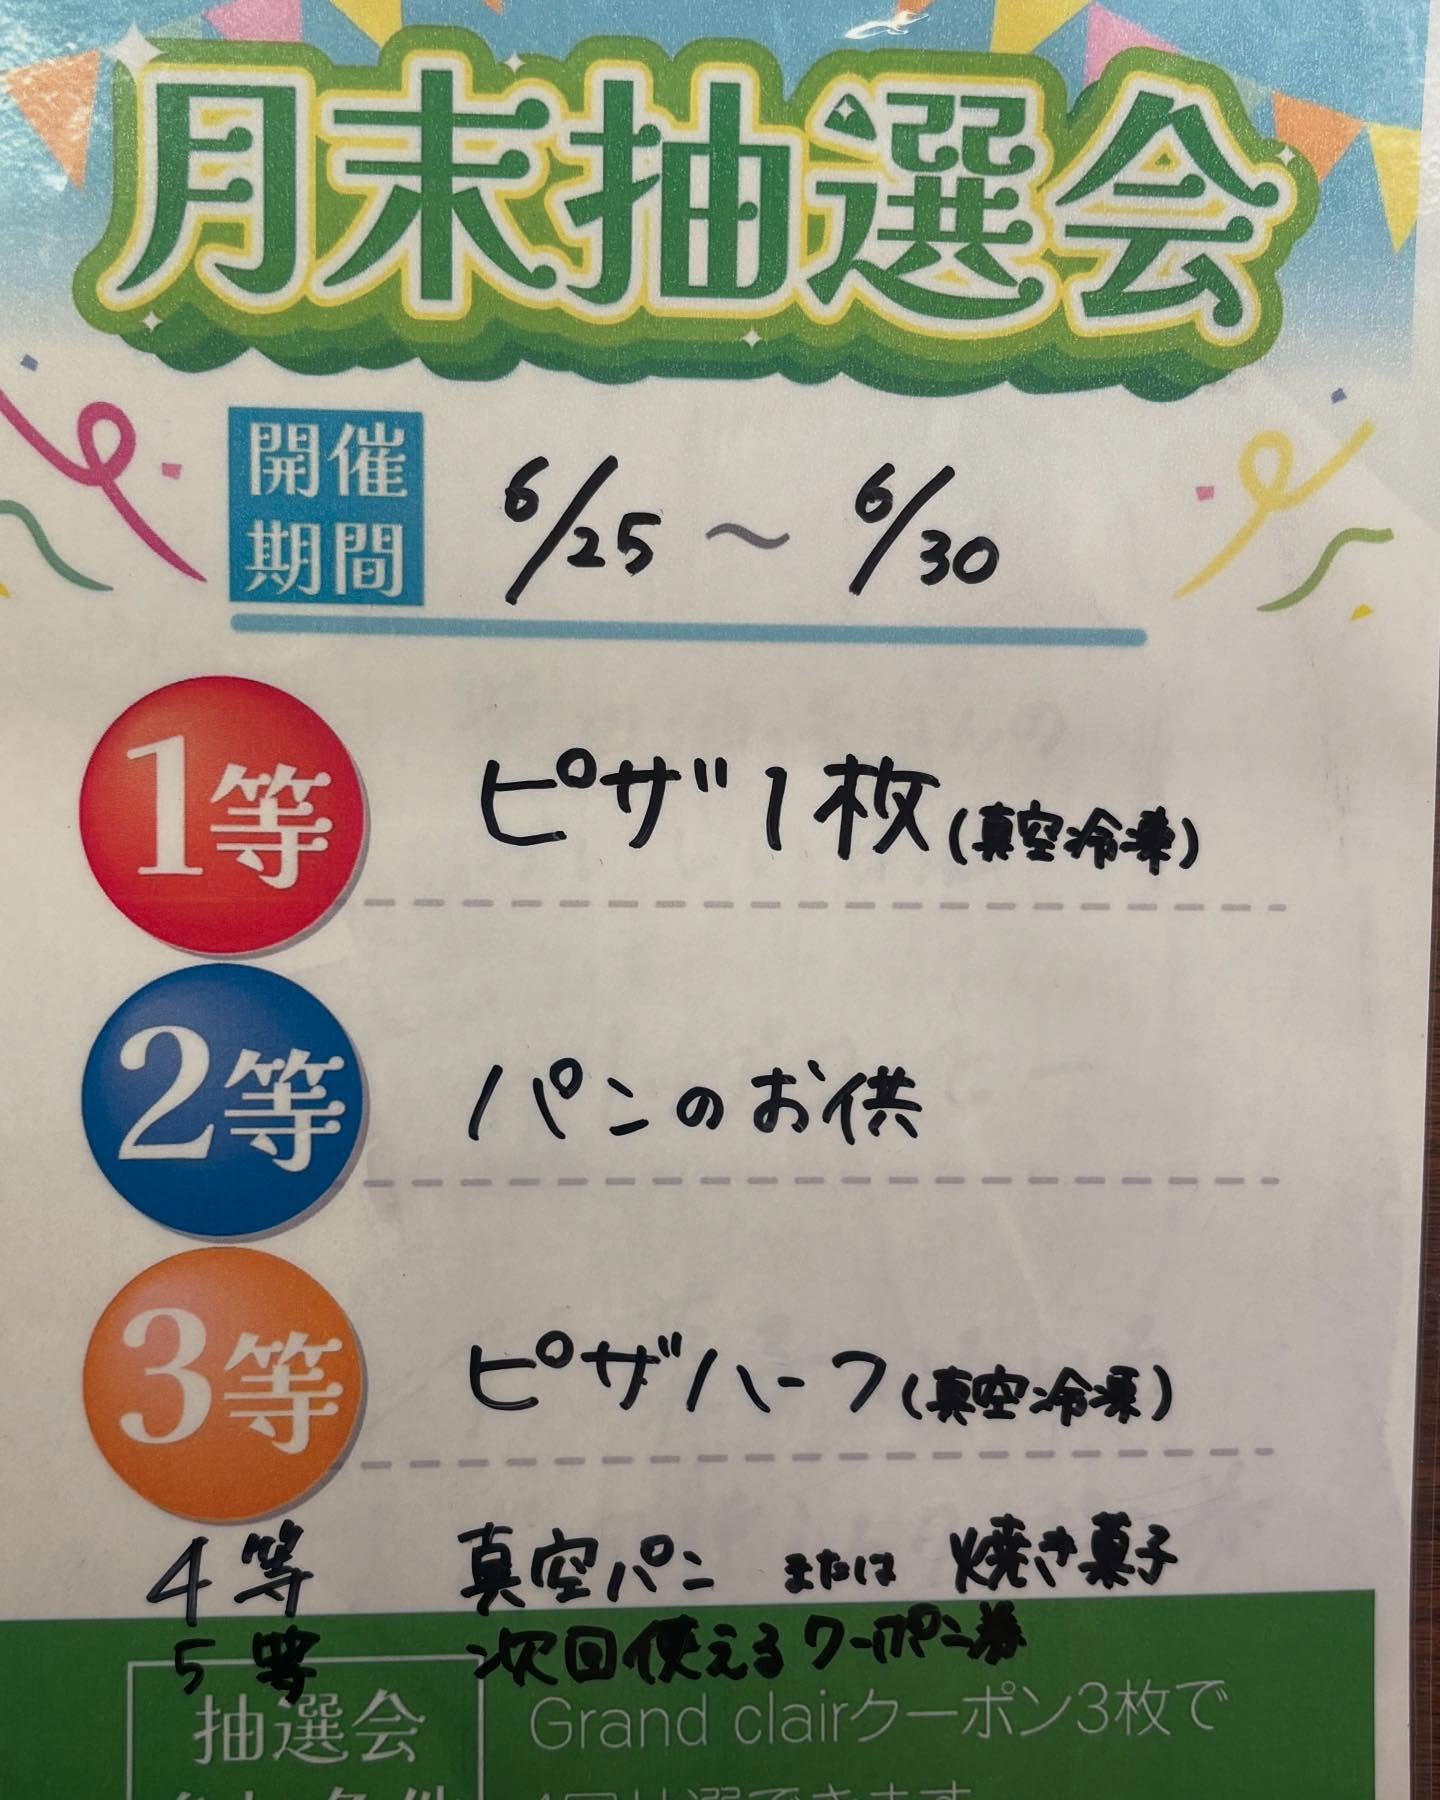 月末抽選会
開催期間 6/25 ～ 6/30
1等 ピザ1枚(真空冷凍)
2等 パンのお供
3等 ピザハーフ(真空冷凍)
4等 真空パン または 焼き菓子
5等 次回使えるクーポン券
抽選会 Grand clairクーポン3枚で
1回抽選できます